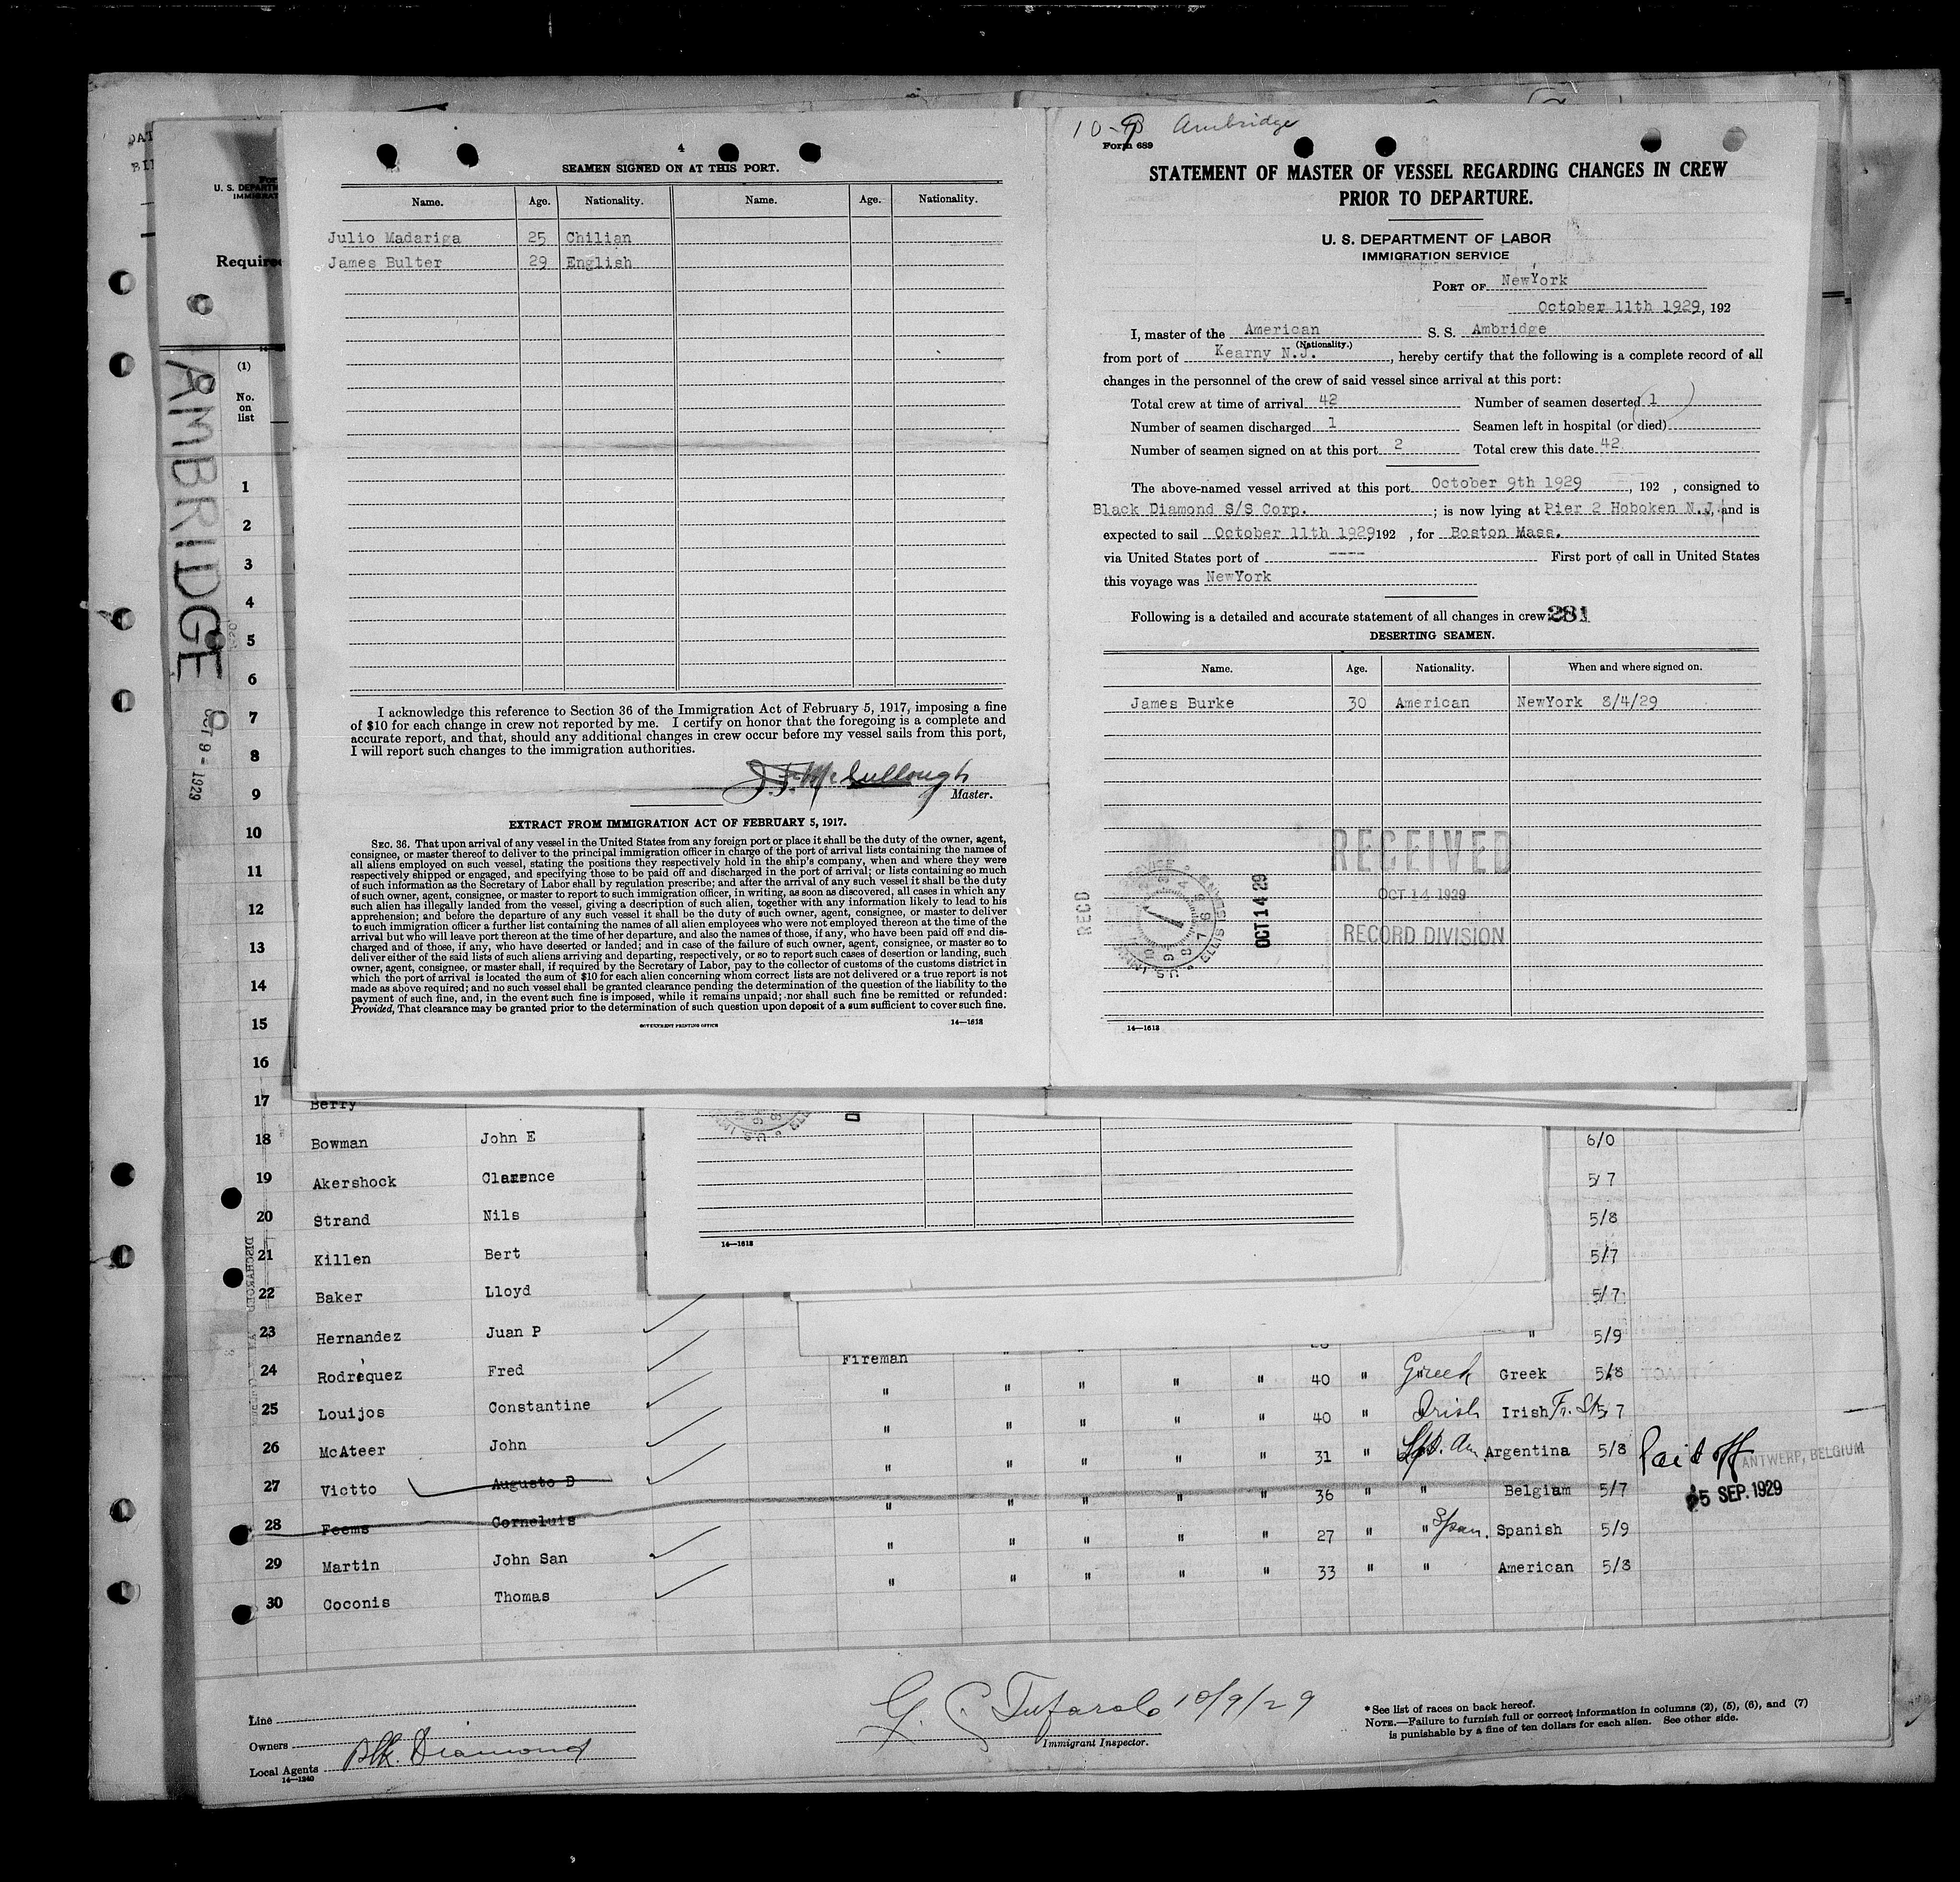 4
SEAMEN SIGNED ON AT THIS PORT.
Name. Age. Nationality. Name. Age. Nationality.
Julio Madariga 25 Chilian
James Bulter 29 English
I acknowledge this reference to Section 36 of the Immigration Act of February 5, 1917, imposing a fine
of $10 for each change in crew not reported by me. I certify on honor that the foregoing is a complete and
accurate report, and that, should any additional changes in crew occur before my vessel sails from this port,
I will report such changes to the immigration authorities.
J. F. McCullough
Master.
EXTRACT FROM IMMIGRATION ACT OF FEBRUARY 5, 1917.
SEC. 36. That upon arrival of any vessel in the United States from any foreign port or place it shall be the duty of the owner, agent,
consignee, or master thereof to deliver to the principal immigration officer in charge of the port of arrival lists containing the names of
all aliens employed on such vessel, stating the positions they respectively hold in the ship's company, when and where they were
respectively shipped or engaged, and specifying those to be paid off and discharged in the port of arrival; or lists containing so much
of such information as the Secretary of Labor shall by regulation prescribe; and after the arrival of any such vessel it shall be the duty
of such owner, agent, consignee, or master to report to such immigration officer, in writing, as soon as discovered, all cases in which any
such alien has illegally landed from the vessel, giving a description of such alien, together with any information likely to lead to his
apprehension; and before the departure of any such vessel it shall be the duty of such owner, agent, consignee, or master to deliver
to such immigration officer a further list containing the names of all alien employees who were not employed thereon at the time of the
arrival but who will leave port thereon at the time of her departure, and also the names of those, if any, who have been paid off and dis-
charged and of those, if any, who have deserted or landed; and in case of the failure of such owner, agent, consignee, or master so to
deliver either of the said lists of such aliens arriving and departing, respectively, or so to report such cases of desertion or landing, such
owner, agent, consignee, or master shall, if required by the Secretary of Labor, pay to the collector of customs of the customs district in
which the port of arrival is located the sum of $10 for each alien concerning whom correct lists are not delivered or a true report is not
made as above required; and no such vessel shall be granted clearance pending the determination of the question of the liability to the
payment of such fine, and, in the event such fine is imposed, while it remains unpaid; nor shall such fine be remitted or refunded:
Provided, That clearance may be granted prior to the determination of such question upon deposit of a sum sufficient to cover such fine.
GOVERNMENT PRINTING OFFICE 14—1612
10-9 Ambridge
Form 689
STATEMENT OF MASTER OF VESSEL REGARDING CHANGES IN CREW
PRIOR TO DEPARTURE.
U. S. DEPARTMENT OF LABOR
IMMIGRATION SERVICE
PORT OF NewYork
October 11th 1929, 192
I, master of the American S. S. Ambridge
(Nationality.)
from port of Kearny N.J. , hereby certify that the following is a complete record of all
changes in the personnel of the crew of said vessel since arrival at this port:
Total crew at time of arrival 42 Number of seamen deserted 1
Number of seamen discharged 1 Seamen left in hospital (or died)
Number of seamen signed on at this port 2 Total crew this date 42
The above-named vessel arrived at this port October 9th 1929, 192 , consigned to
Black Diamond S/S Corp. ; is now lying at Pier 2 Hoboken N.J, and is
expected to sail October 11th 1929 192 , for Boston Mass.
via United States port of ---- First port of call in United States
this voyage was NewYork
Following is a detailed and accurate statement of all changes in crew: 281
DESERTING SEAMEN.
Name. Age. Nationality. When and where signed on.
James Burke 30 American NewYork 8/4/29
RECEIVED
OCT 14 1929
RECORD DIVISION
RECD
OCT 14 29
14—1612
U. S. DEPARTM
IMMIGRAT
Require
AMBRIDGE
OCT 9 - 1929
(1)
No.
on
list
1
2
3
4
5
6
7
8
9
10
11
12
13
14
15
16
17 Berry
18 Bowman John E 6/0
19 Akershock Clarence 5/7
20 Strand Nils 5/8
21 Killen Bert 5/7
22 Baker Lloyd 5/7
23 Hernandez Juan P " 5/9
24 Rodrequez Fred Fireman " " " "
25 Louijos Constantine " " " " " 40 " Greek Greek 5/8
26 McAteer John " " " " " 40 " Irish Irish 5/7
27 Victto Augusto D " " " " " 31 " Argentina 5/8
28 Feems Corneluis " " " " " 36 " " Belgium 5/7
29 Martin John San " " " " " 27 " " Span. Spanish 5/9
30 Coconis Thomas " " " " " 33 " " American 5/8
Paid off
ANTWERP, BELGIUM
SEP. 1929
14—1612
Line
Owners
Local Agents Blk. Diamond
14—1240
10/9/29
Immigrant Inspector.
* See list of races on back hereof.
NOTE.—Failure to furnish full or correct information in columns (2), (5), (6), and (7)
is punishable by a fine of ten dollars for each alien. See other side.